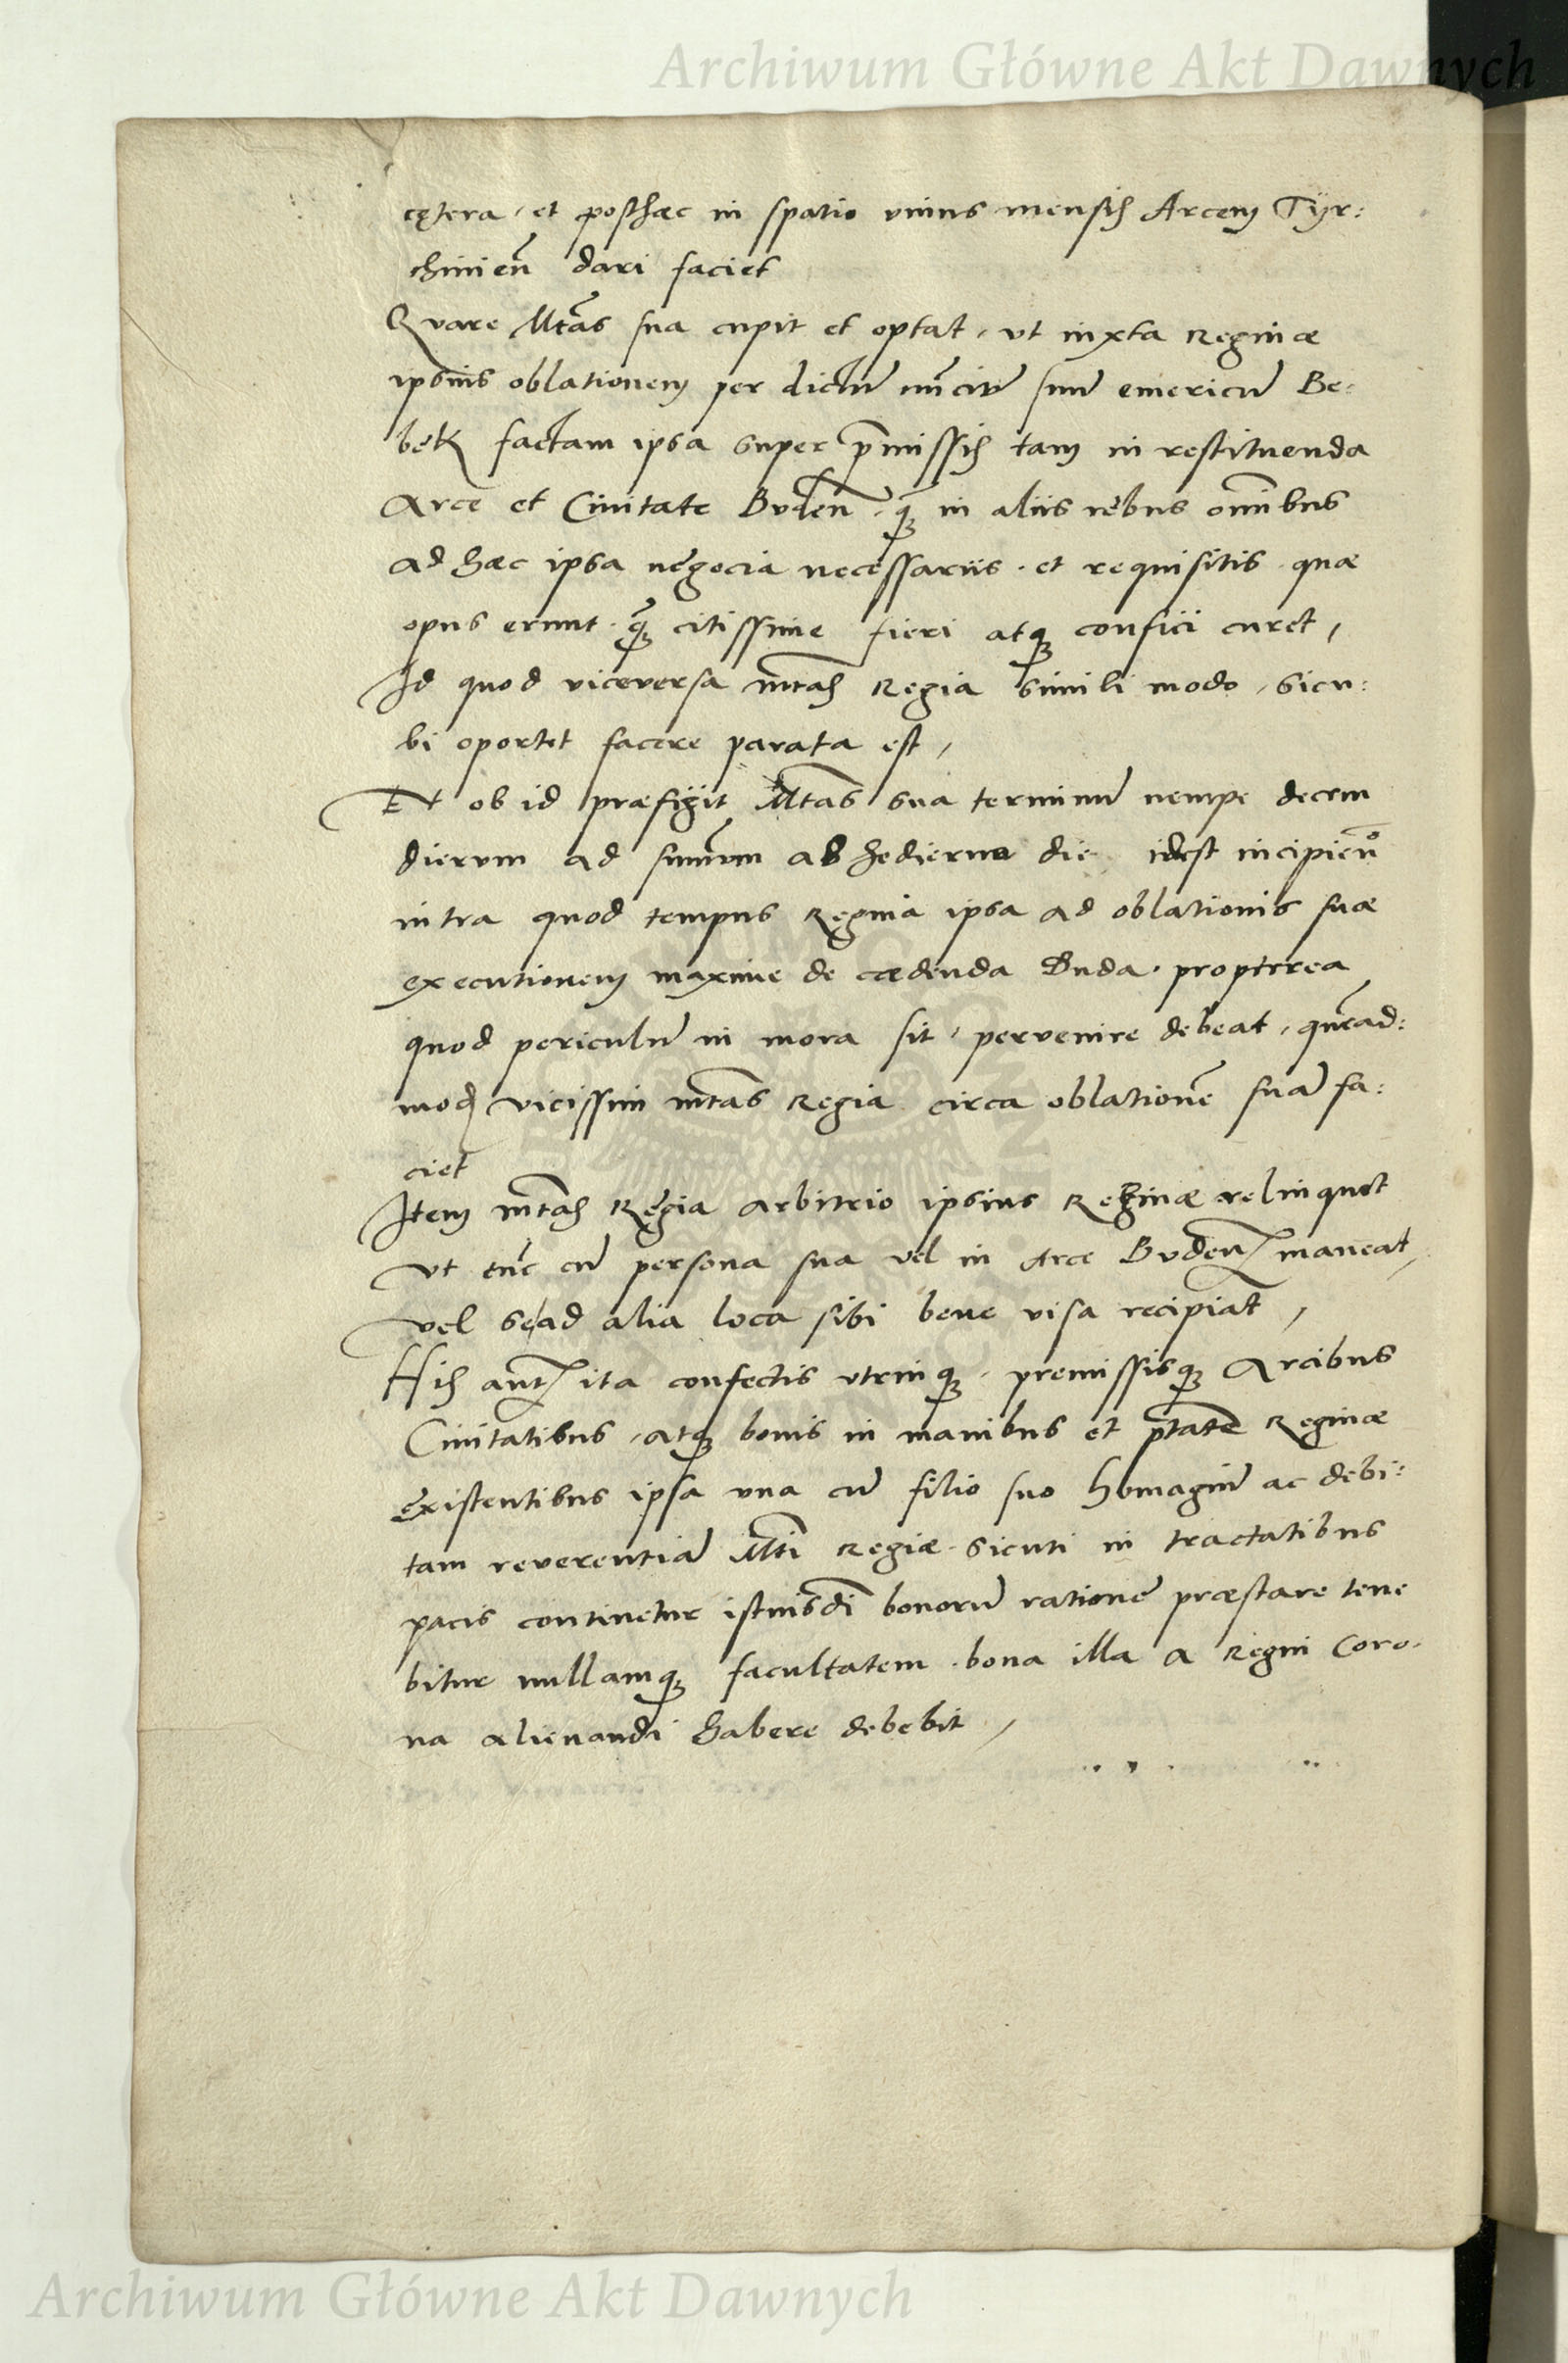 Archiwum Główne Akt Dawnych
cętera, et posthæc in spatio vnius mensis Arcem Tÿr:
chinień dari faciet
Qvare Mtas̃ sua cupit et optat, vt iuxta Reginæ
ipsius oblationem per dictũ nũciũ suũ emericũ Be:
bek factam ipsa super p̃missis tam in restituenda
Arce et Ciuitate Buden̄, q̃ꝫ in aliis rebus om̃ibus
ad hæc ipsa negocia necessariis, et requisitis, quæ
opus erunt, q̃ꝫ citissime fieri atqꝫ confici curet,
Id quod viceversa mtas̃ Regia simili modo, sicu:
bi oportet facere parata est,
Et ob id præfigit Mtas̃ sua terminũ nempe decem
dierum ad sum̃um ab hodierna die idest incipień°
intra quod tempus Regina ipsa ad oblationis suæ
executionem maxime de cædenda Buda, propterea
quod periculũ in mora sit, pervenire debeat, quẽad:
mod vicissim mtas̃ Regia circa oblationẽ suã fa:
ciet
Item mtas̃ Regia arbitrio ipsius Reginæ relinquet
vt tũc cũ persona sua vel in Arce Buden̄ maneat,
vel se/ad alia loca sibi bene visa recipiat,
His aut̃ ita confectis vtrinqꝫ, premissisqꝫ Arcibus
Ciuitatibus, atqꝫ bonis in manibus et p̃tate Reginæ
existentibus ipsa vna cũ filio suo homagiũ ac debi:
tam reverentiã Mti̇̃ Regiæ, sicuti in tractatibus
pacis continetur istiusdĩ bonorũ rationẽ præstare tene
bitur nullamqꝫ facultatem, bona illa a Regni Coro:
na alienandi habere debebit,
Archiwum Główne Akt Dawnych